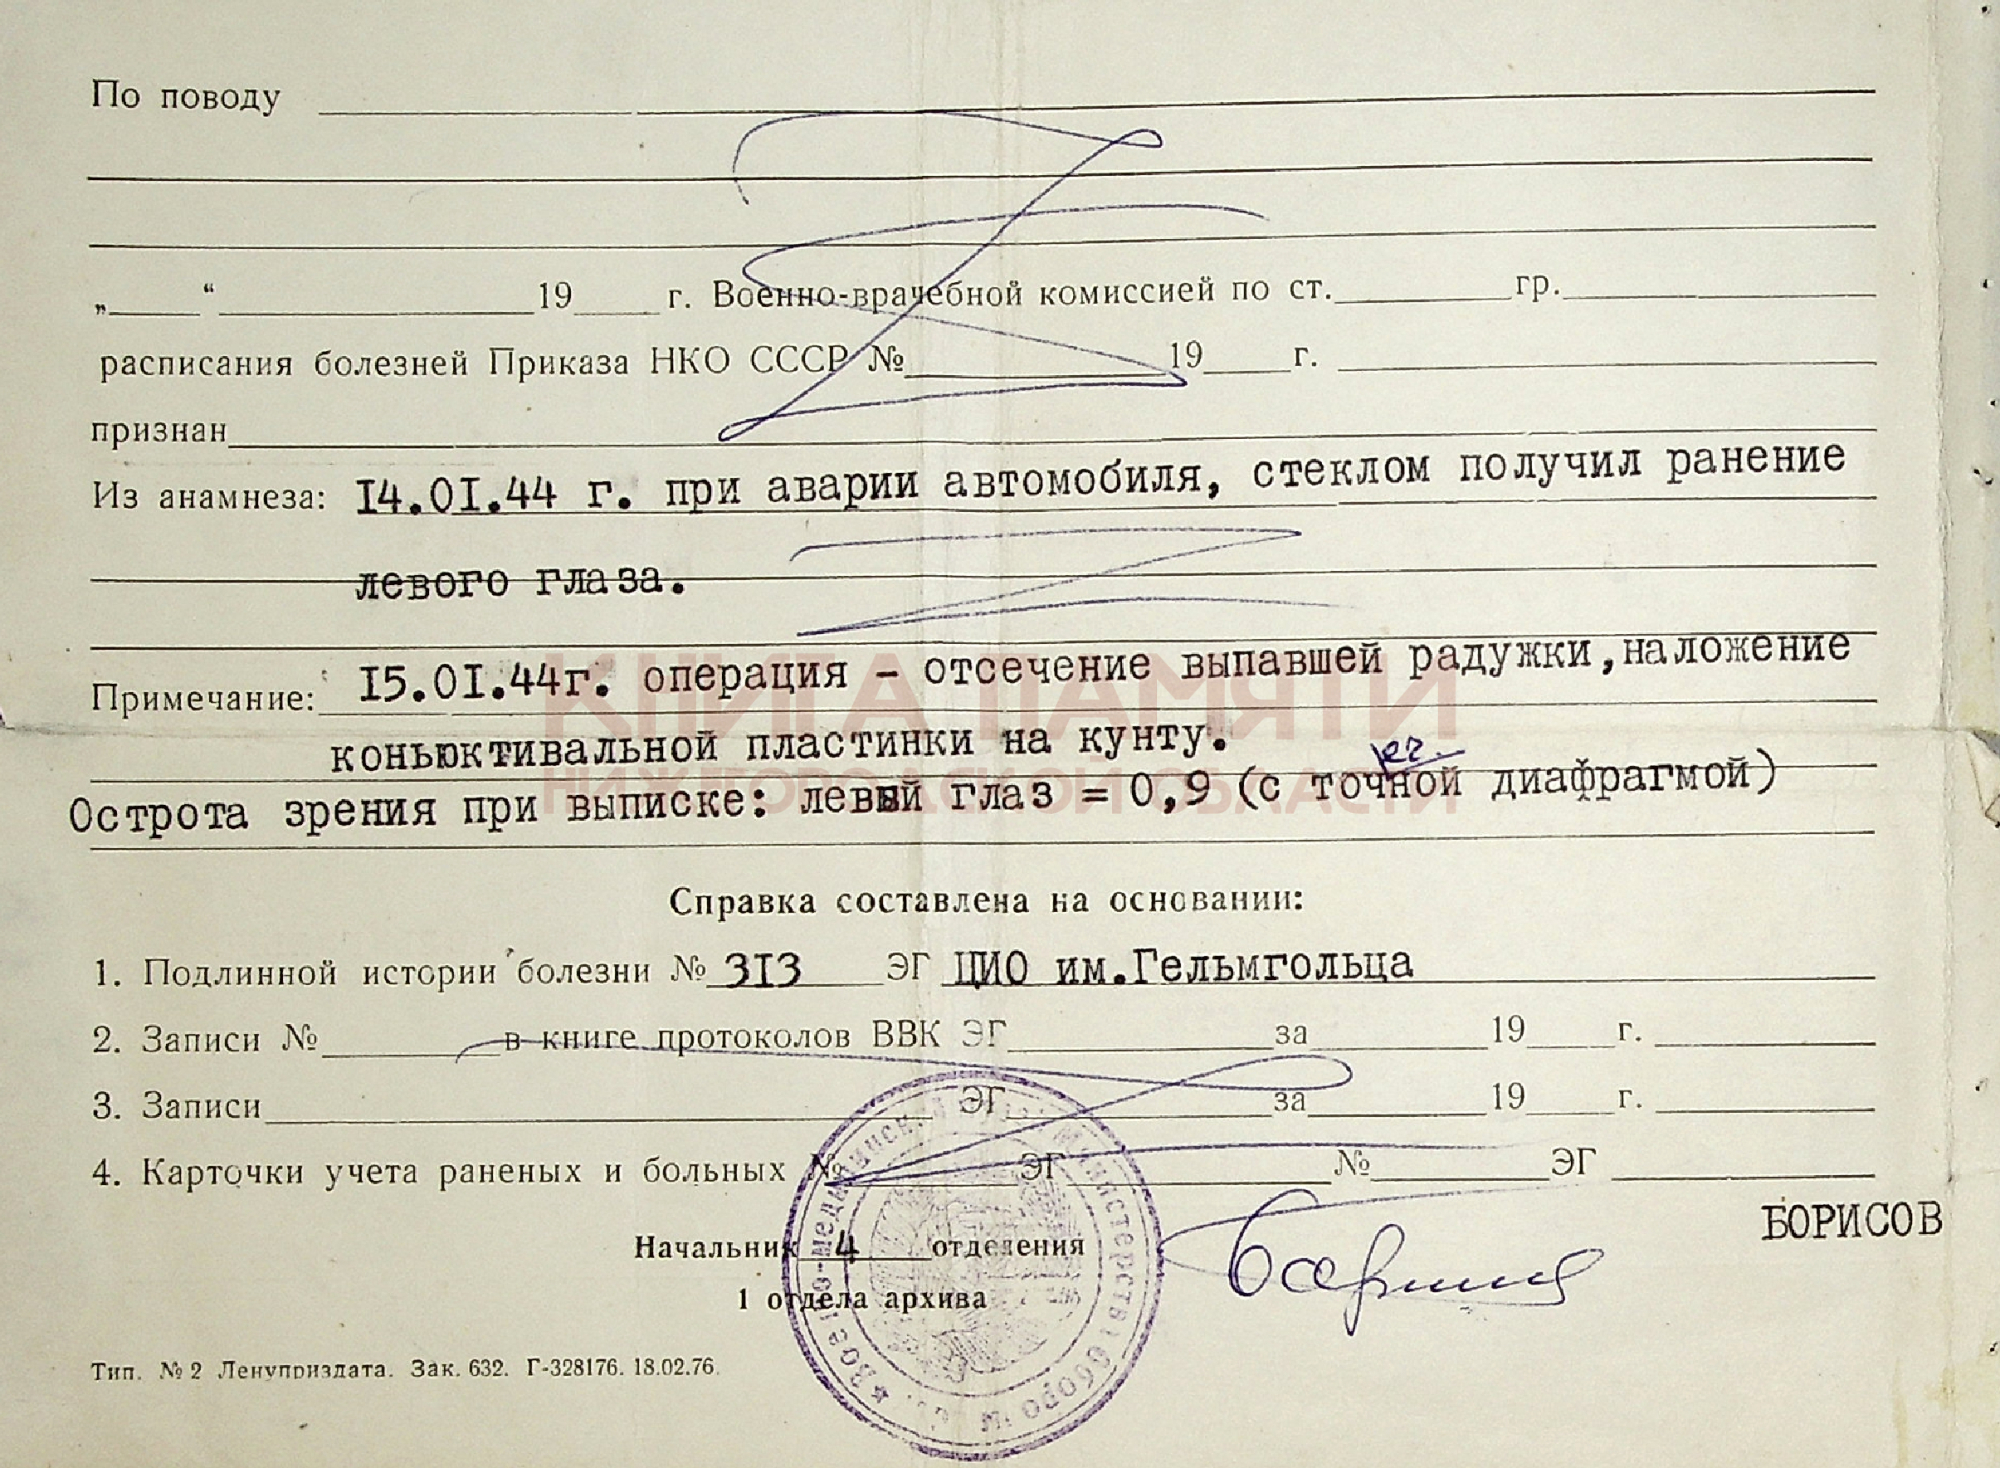 По поводу
„ “ 19 г. Военно-врачебной комиссией по ст. гр.
расписания болезней Приказа НКО СССР № 19 г.
признан
Из анамнеза: 14.01.44 г. при аварии автомобиля, стеклом получил ранение
левого глаза.
КНИГА ПАМЯТИ
НИЖЕГОРОДСКОЙ ОБЛАСТИ
Примечание: 15.01.44г. операция - отсечение выпавшей радужки, наложение
коньюктивальной пластинки на кунту.
Острота зрения при выписке: левый глаз = 0,9 (с точной диафрагмой)
Справка составлена на основании:
1. Подлинной истории болезни № 313 ЭГ ЦИО им.Гельмгольца
2. Записи № в книге протоколов ВВК ЭГ за 19 г.
3. Записи ЭГ за 19 г.
4. Карточки учета раненых и больных № ЭГ № ЭГ
БОРИСОВ
Начальник 4 отделения
1 отдела архива
Тип. № 2 Ленуприздата. Зак. 632. Г-328176. 18.02.76.